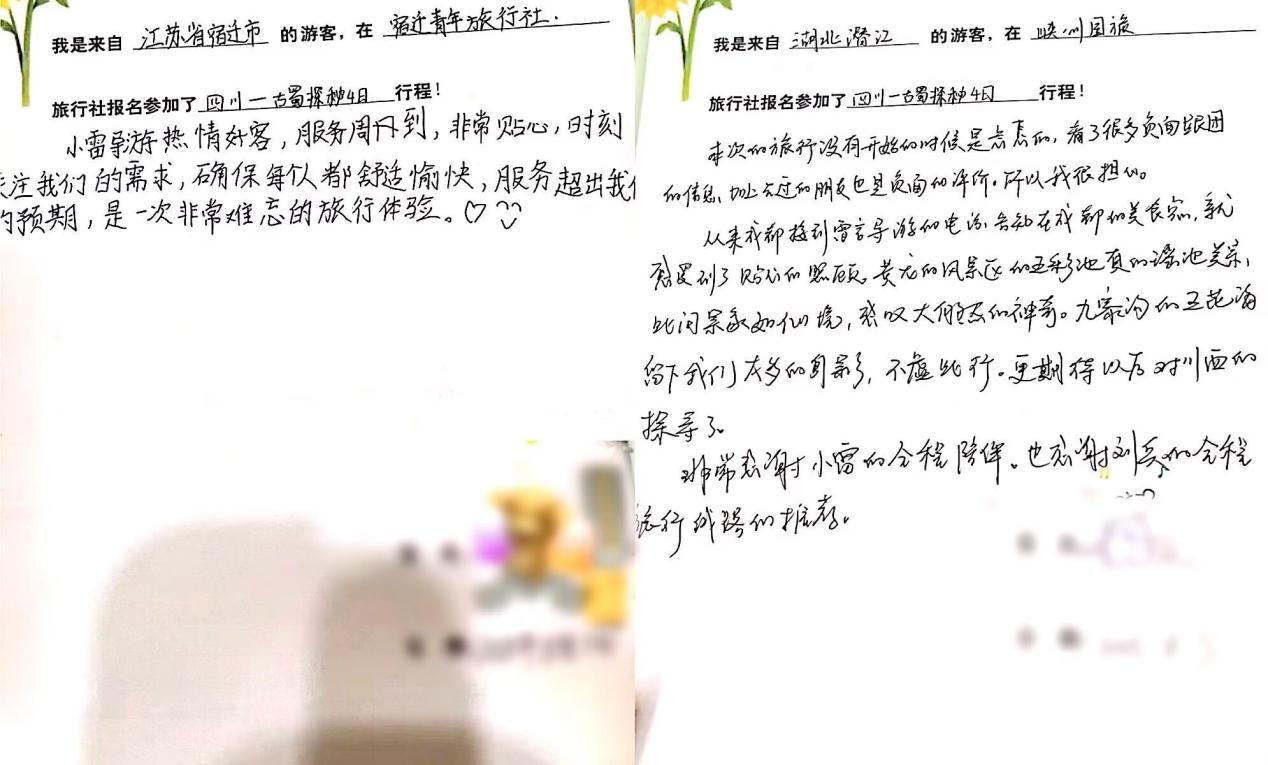 我是来自 江苏省宿迁市 的游客，在 宿迁青年旅行社.
旅行社报名参加了 四川一古蜀探秘4日 行程！
小雷导游热情好客，服务周到，非常贴心，时刻
关注我们的需求，确保每个人都舒适愉快，服务超出我们
的预期，是一次非常难忘的旅行体验。♡
我是来自 湖北潜江 的游客，在 峡州国旅
旅行社报名参加了 四川一古蜀探秘4日 行程！
本次的旅行没有开始的时候是忐忑的，看了很多负面跟团
的信息，加上去过的朋友也是负面的评价。所以我很担心。
从来成都接到雷言导游的电话，各动在成都的美食家，就
感受到了贴心的照顾。黄龙的风景区的五彩池真的瑶池美景，
此间景象如仙境，感叹大自然的神奇。九寨沟的五花海
留下我们太多的身影，不虚此行。更期待以后对川西的
探寻了。
非常感谢小雷的全程陪伴。也感谢刘兵的全程
旅行线路的推荐。